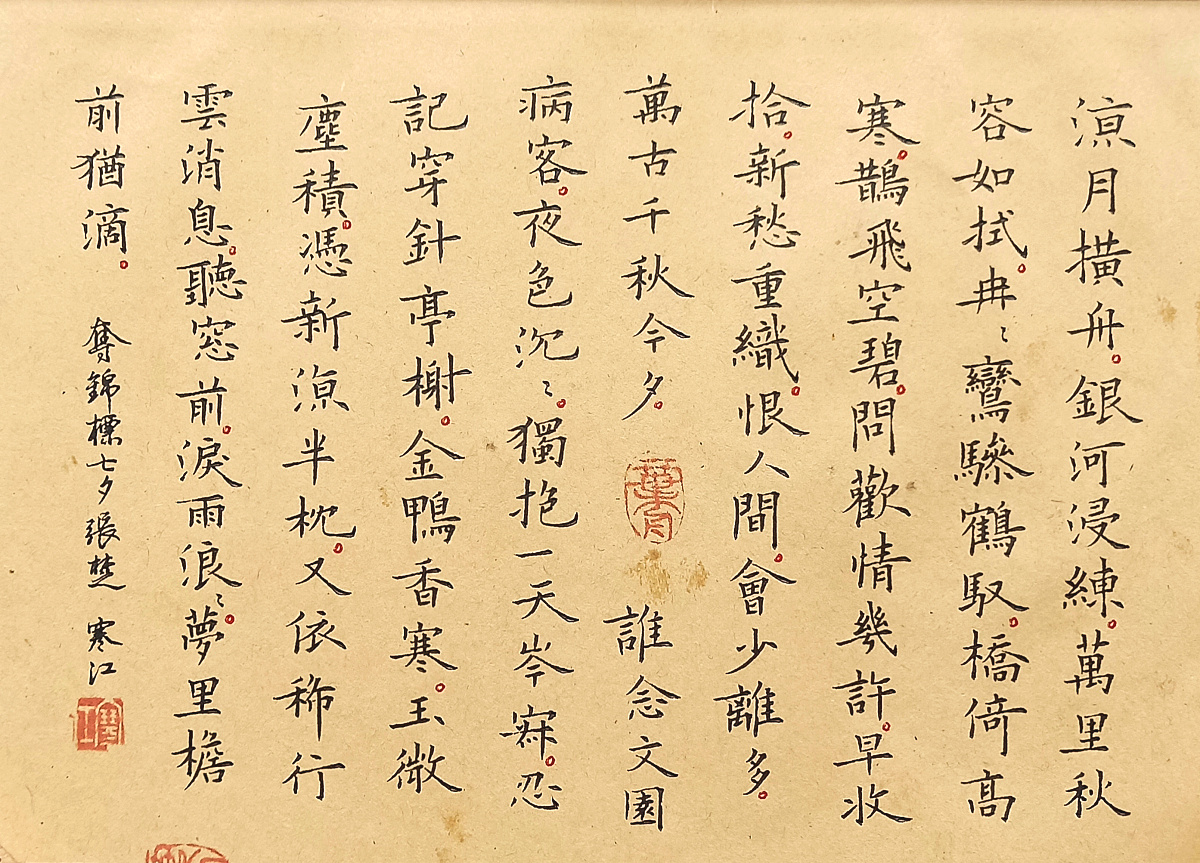 涼月橫舟。銀河浸練。萬里秋
容如拭。冉〻鸞驂鶴馭。橋倚高
寒。鵲飛空碧。問歡情幾許。早收
拾。新愁重織。恨人間。會少離多。
萬古千秋今夕。
誰念文園
病客。夜色沉〻。獨抱一天岑寂。忍
記穿針亭榭。金鴨香寒。玉徽
塵積。憑新涼半枕。又依稀行
雲消息。聽窓前。淚雨浪〻。夢里檐
前猶滴。
奪錦標七夕張埜 寒江